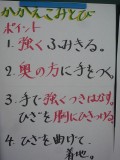 かかえこみとび
ポイント
1. 強くふみきる。
2. 奥の方に手をつく。
3. 手で強くつきはなす。
ひざを胸にひきつける。
4. ひざを曲げて
着地。